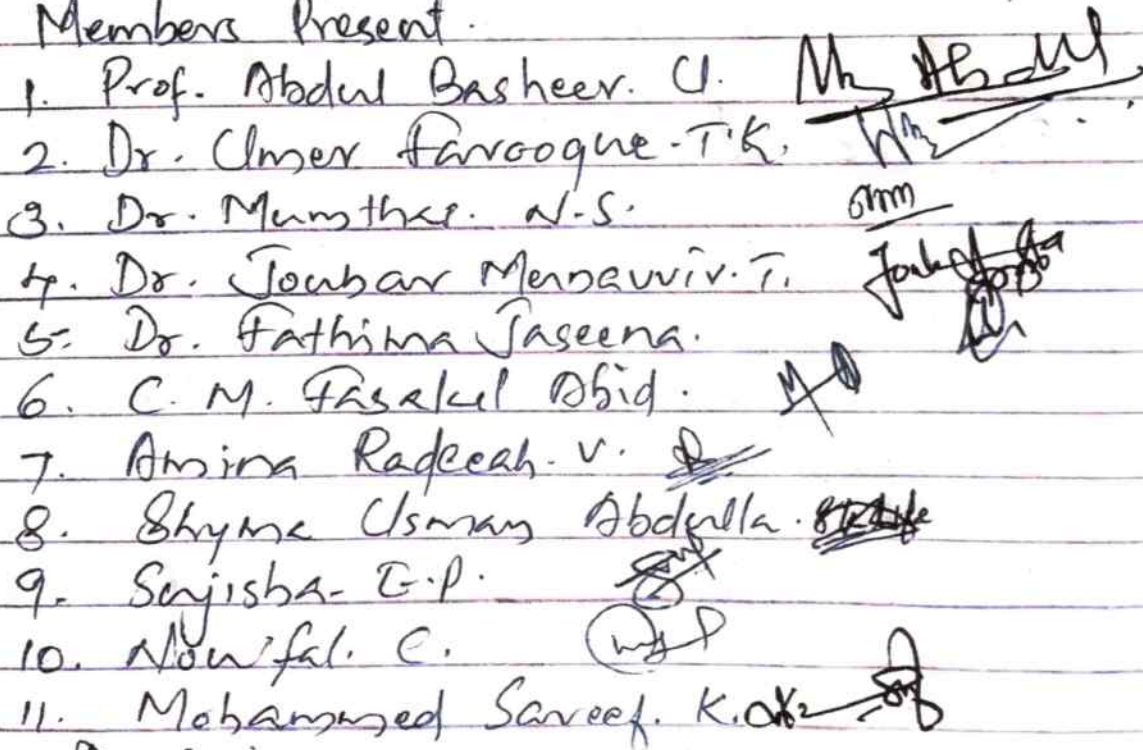 Members Present.
1. Prof. Abdul Basheer. U.
2. Dr. Umer Farooque. T.K.
3. Dr. Mumthas. N.S.
4. Dr. Joubar Munavvir. T.
5. Dr. Fathima Jaseena.
6. C. M. Fasalul Abid.
7. Amina Radeeah. V.
8. Shyma Usman Abdulla.
9. Sajisha. E.P.
10. Nowfal. C.
11. Mohammed Sareef. K.